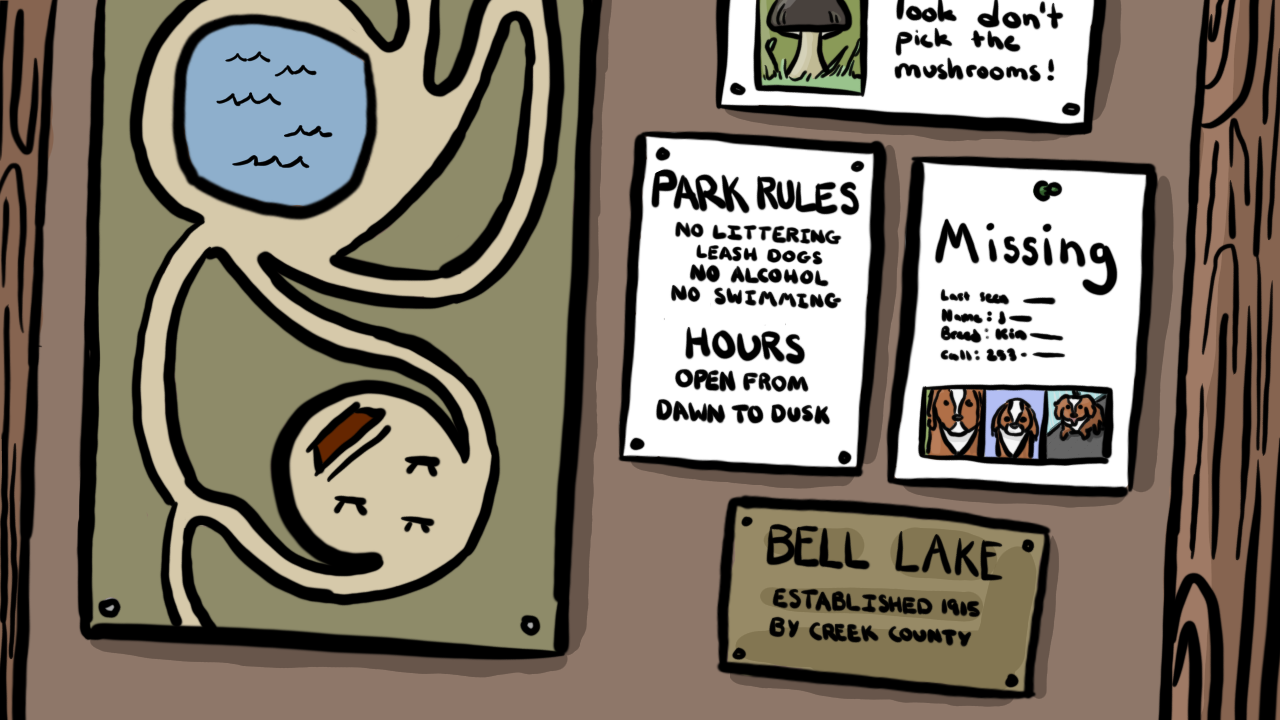 look don't
pick the
mushrooms!
PARK RULES
NO LITTERING
LEASH DOGS
NO ALCOHOL
NO SWIMMING
HOURS
OPEN FROM
DAWN TO DUSK
Missing
Last seen
Name: J
Breed: Kin
Call: 253-
BELL LAKE
ESTABLISHED 1915
BY CREEK COUNTY